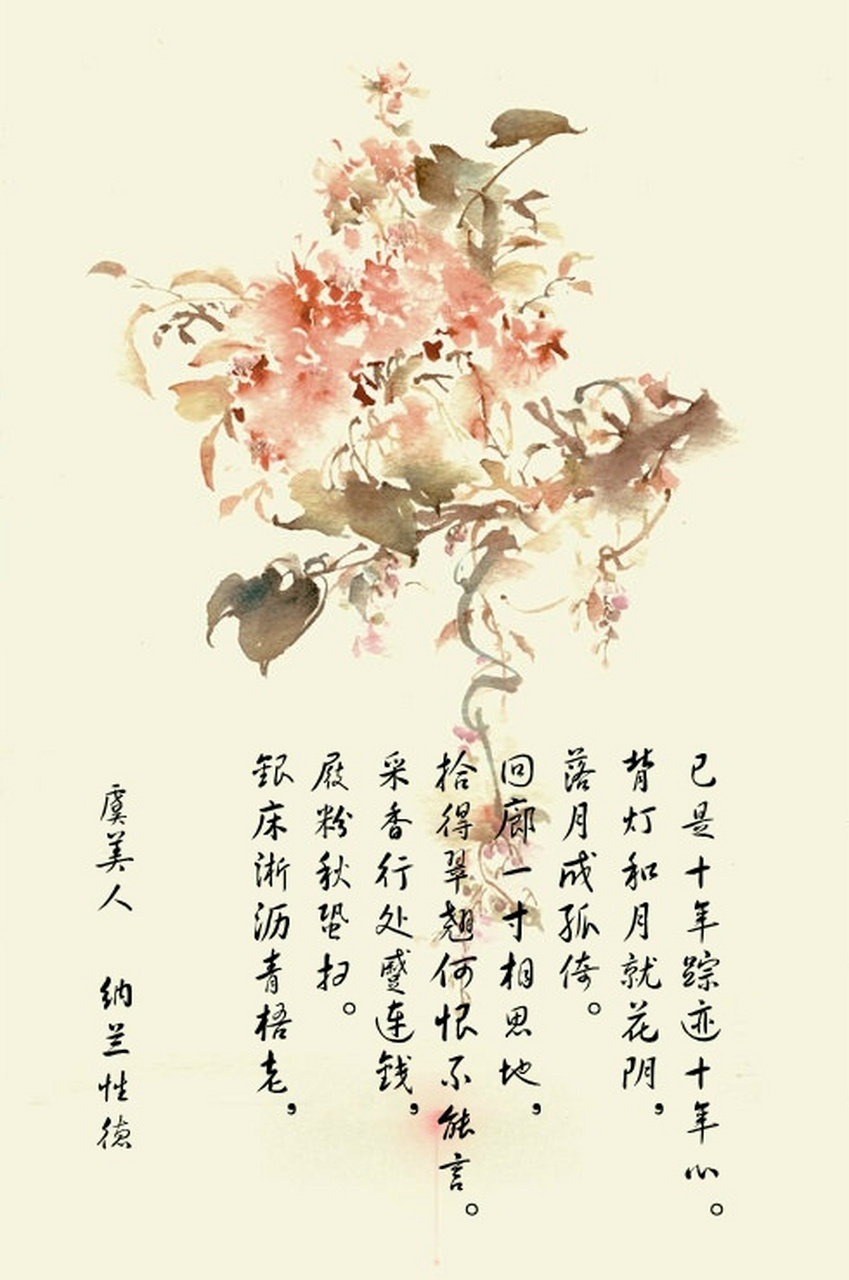 虞美人 纳兰性德
銀床淅沥青梧老，
屐粉秋蛩扫。
采香行处蹙连錢，
拾得翠翘何恨不能言。
回廊一寸相思地，
落月成孤倚。
背灯和月就花阴，
已是十年踪迹十年心。